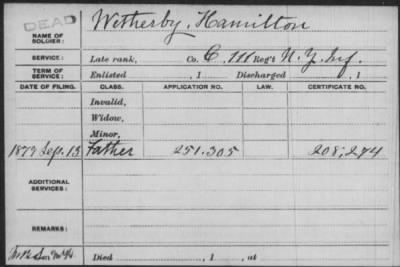 DEAD
NAME OF SOLDIER: Wetherby, Hamilton
SERVICE: Late rank, Co. C. 111 Reg't N. Y. Inf.
TERM OF SERVICE: Enlisted , 1 Discharged , 1
DATE OF FILING. CLASS. APPLICATION NO. LAW. CERTIFICATE NO.
Invalid,
Widow,
Minor,
1879 Sep. 13 Father 251.305 208,274
ADDITIONAL SERVICES:
REMARKS:
Died , 1 , at